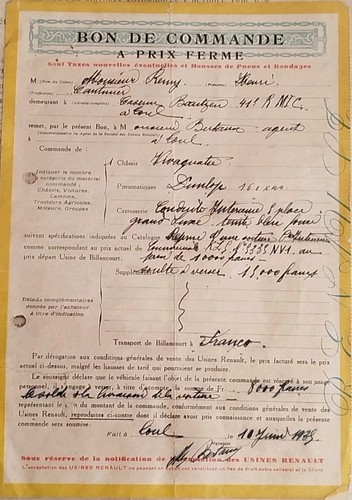 BON DE COMMANDE
A PRIX FERME
Sauf Taxes nouvelles éventuelles et Hausses de Pneus et Bandages
M Monsieur Remy Henri
Cantinier
demeurant à Caserne Bautzen
à Toul
remet, par le présent Bon, à Monsieur agent
à Toul
Commande de :
1 Châssis Vivaquatre
Indiquer le nombre
catégorie du matériel
commandé :
Châssis, Voitures,
Camions,
Tracteurs Agricoles,
Moteurs, Groupes
Pneumatiques Dunlop
Carrosserie Conduite Intérieure place
grand luxe teinte pour
suivant spécifications indiquées au Catalogue Reprise d'une voiture
comme correspondant au prix actuel de au
prix départ Usine de Billancourt. prix de 1000 francs
Supplé soulte à verser 15,000 francs
Détails complémentaires
donnés par l'acheteur
à titre d'indication
Transport de Billancourt à Franco
Par dérogation aux conditions générales de vente des Usines Renault, le prix facturé sera le prix
actuel ci-dessus, malgré les hausses de tarif qui pourraient se produire.
Le soussigné déclare que le véhicule faisant l'objet de la présente commande est réservé à son usage
personnel, il s'engage à verser, à titre d'acompte, la somme de Fr. 8000 francs
le solde à la livraison de la voiture
représentant le du montant de la commande, conformément aux conditions générales de vente des
Usines Renault, reproduites ci-contre dont il déclare avoir pris connaissance et auxquelles la présente
commande sera soumise.
Fait à Toul, le 10 Juin 1935
Signature
Sous réserve de la notification de des USINES RENAULT
L'acceptation des USINES RENAULT ne pouvant